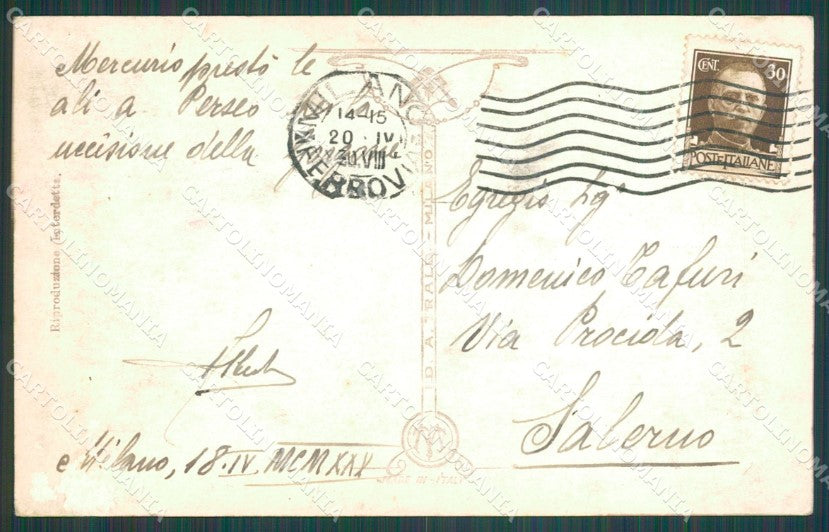 Mercurio prestò le
ali a Perseo
uccisione della
Milano, 18.IV.MCMXXX
Riproduzione interdetta.
D. A. TRALDI - MILANO
MADE IN ITALY
MILANO
14-15
20 IV
30.VIII
FERROVIA
CENT. 30
POSTE ITALIANE
Egregio Sig.
Domenico Tafuri
Via Procida, 2
Salerno
CARTOLINOMANIA